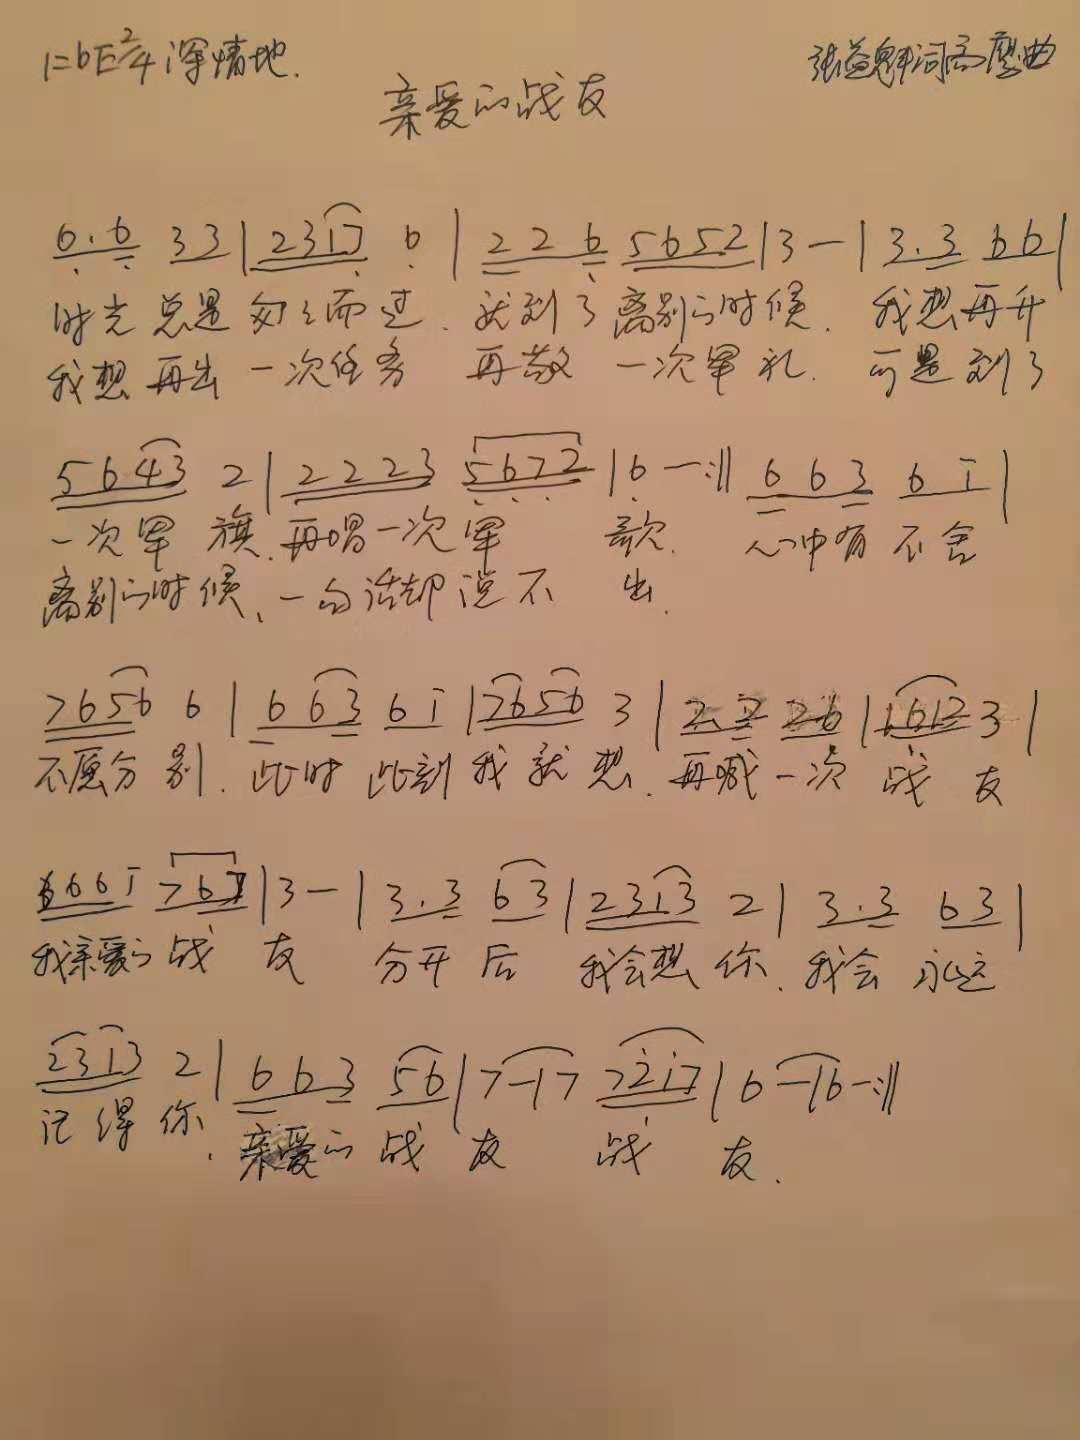 1=bE 2/4 深情地. 词 曲
亲爱的战友
6. 6 3 3 | 2 3 1 7 6 | 2 2 6 5 6 5 2 | 3 — | 3. 3 6 6 |
时光 总是 匆匆而过. 就到了离别的时候. 我想再升
我想再出 一次任务 再敬 一次军礼. 可是到了
5 6 4 3 2 | 2 2 2 3 5 6 7 2 | 6 — :‖ 6 6 3 6 i |
一次军 旗.再唱一次军 歌. 心中有不舍
离别的时候、一句话却说不 出.
7 6 5 6 6 | 6 6 3 6 i | 7 6 5 6 3 | 2. 2 2 6 | 1 6 1 2 3 |
不愿分别. 此时 此刻我就想. 再喊一次 战 友
6 6 6 i 7 6 7 | 3 — | 3. 3 6 3 | 2 3 1 3 2 | 3. 3 6 3 |
我亲爱的战 友 分开后 我会想你. 我会 永远
2 3 1 3 2 | 6 6 3 5 6 | 7 — | 7 7 2̇ i 7 | 6 — | 6 — :‖
记得你. 亲爱的战友 战 友.